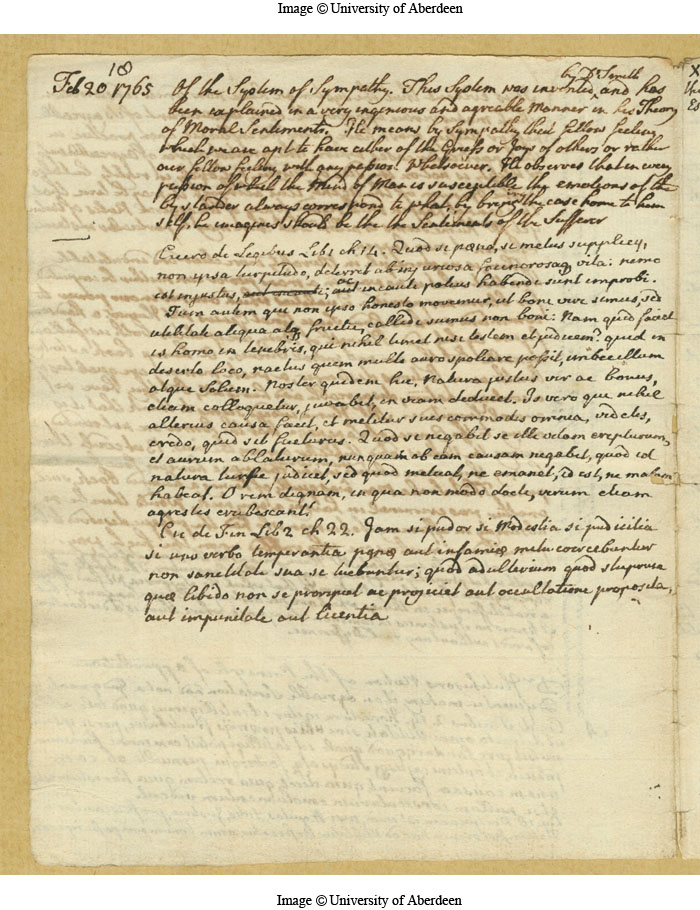 Image © University of Aberdeen
18
Feb 20 1765 Of the System of Sympathy. This System was invented by Dr Smith and has
been explained in a very ingenious and agreable Manner in his Theory
of Moral Sentiments. He means by Sympathy that fellow feeling
which we are apt to have either of the Griefs or Joys of others or rather
our fellow feeling with any passion Whatsoever. He observes that in every
passion of which the Mind of Man is susceptible the emotions of the
by stander always correspond to what, by bringing the case home to him
self, he imagines should be the the Sentiments of the Sufferer
Cicero de Legibus Lib 1 ch 14. Quod si pæna, si metus supplicij,
non ipsa turpitudo, deterret ab injuriosa facinorosaq vita: nemo
est injustus, aut incauti potius habendi sunt improbi.
Tum autem qui non ipso honesto movemur, ut boni viri simus, sed
utilitate aliqua atq fructu, callidi sumus non boni: Nam quid faciet
is homo in tenebris, qui nihil timet nisi testem et judicem? quid in
deserto loco, nactus quem multo auro spoliare possit, imbecillum
atque Solum. Noster quidem hic, Natura justus vir ac bonus,
etiam colloquetur, juvabit, in viam deducet. Is vero qui nihil
alterius causa facit, et metitur suis commodis omnia, videtis,
credo, quid sit facturus. Quod si negabit se illi vitam erepturum,
et aurum ablaturum, nunquam ob eam causam negabit, quod id
natura turpe judicet, sed quod metuat, ne emanet, id est, ne malum
habeat. O rem dignam, in qua non modo docti, verum etiam
agrestes erubescant!
Cic de Fin Lib 2 ch 22. Jam si pudor si Modestia si pudicitia
si uno verbo temperantia pænæ aut infamiæ metu coercebuntur
non sanctitate sua se tuebuntur; quod adulterium quod stuprum
quæ libido non se proripiet ac projiciet aut occultatione proposita,
aut impunitate aut licentia
Image © University of Aberdeen